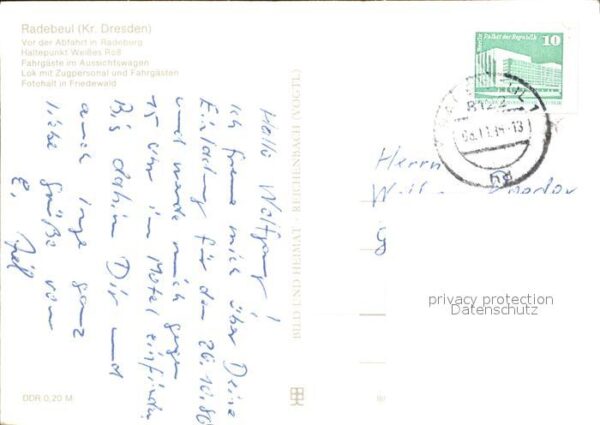 Radebeul (Kr. Dresden)
Vor der Abfahrt in Radeburg
Haltepunkt Weißes Roß
Fahrgäste im Aussichtswagen
Lok mit Zugpersonal und Fahrgästen
Fotohalt in Friedewald
Hallo Wolfgang!
Ich freue mich über Deine
Einladung für den 26.10.86
und werde mich gegen
15 Uhr im Motel einfinden
Bis dahin Dir und
auch Inge ganz
liebe Grüße vom
BILD UND HEIMAT · REICHENBACH (VOGTL)
DDR 0,20 M
Berlin Palast der Republik 10
DDR
8122
Herrn
privacy protection
Datenschutz